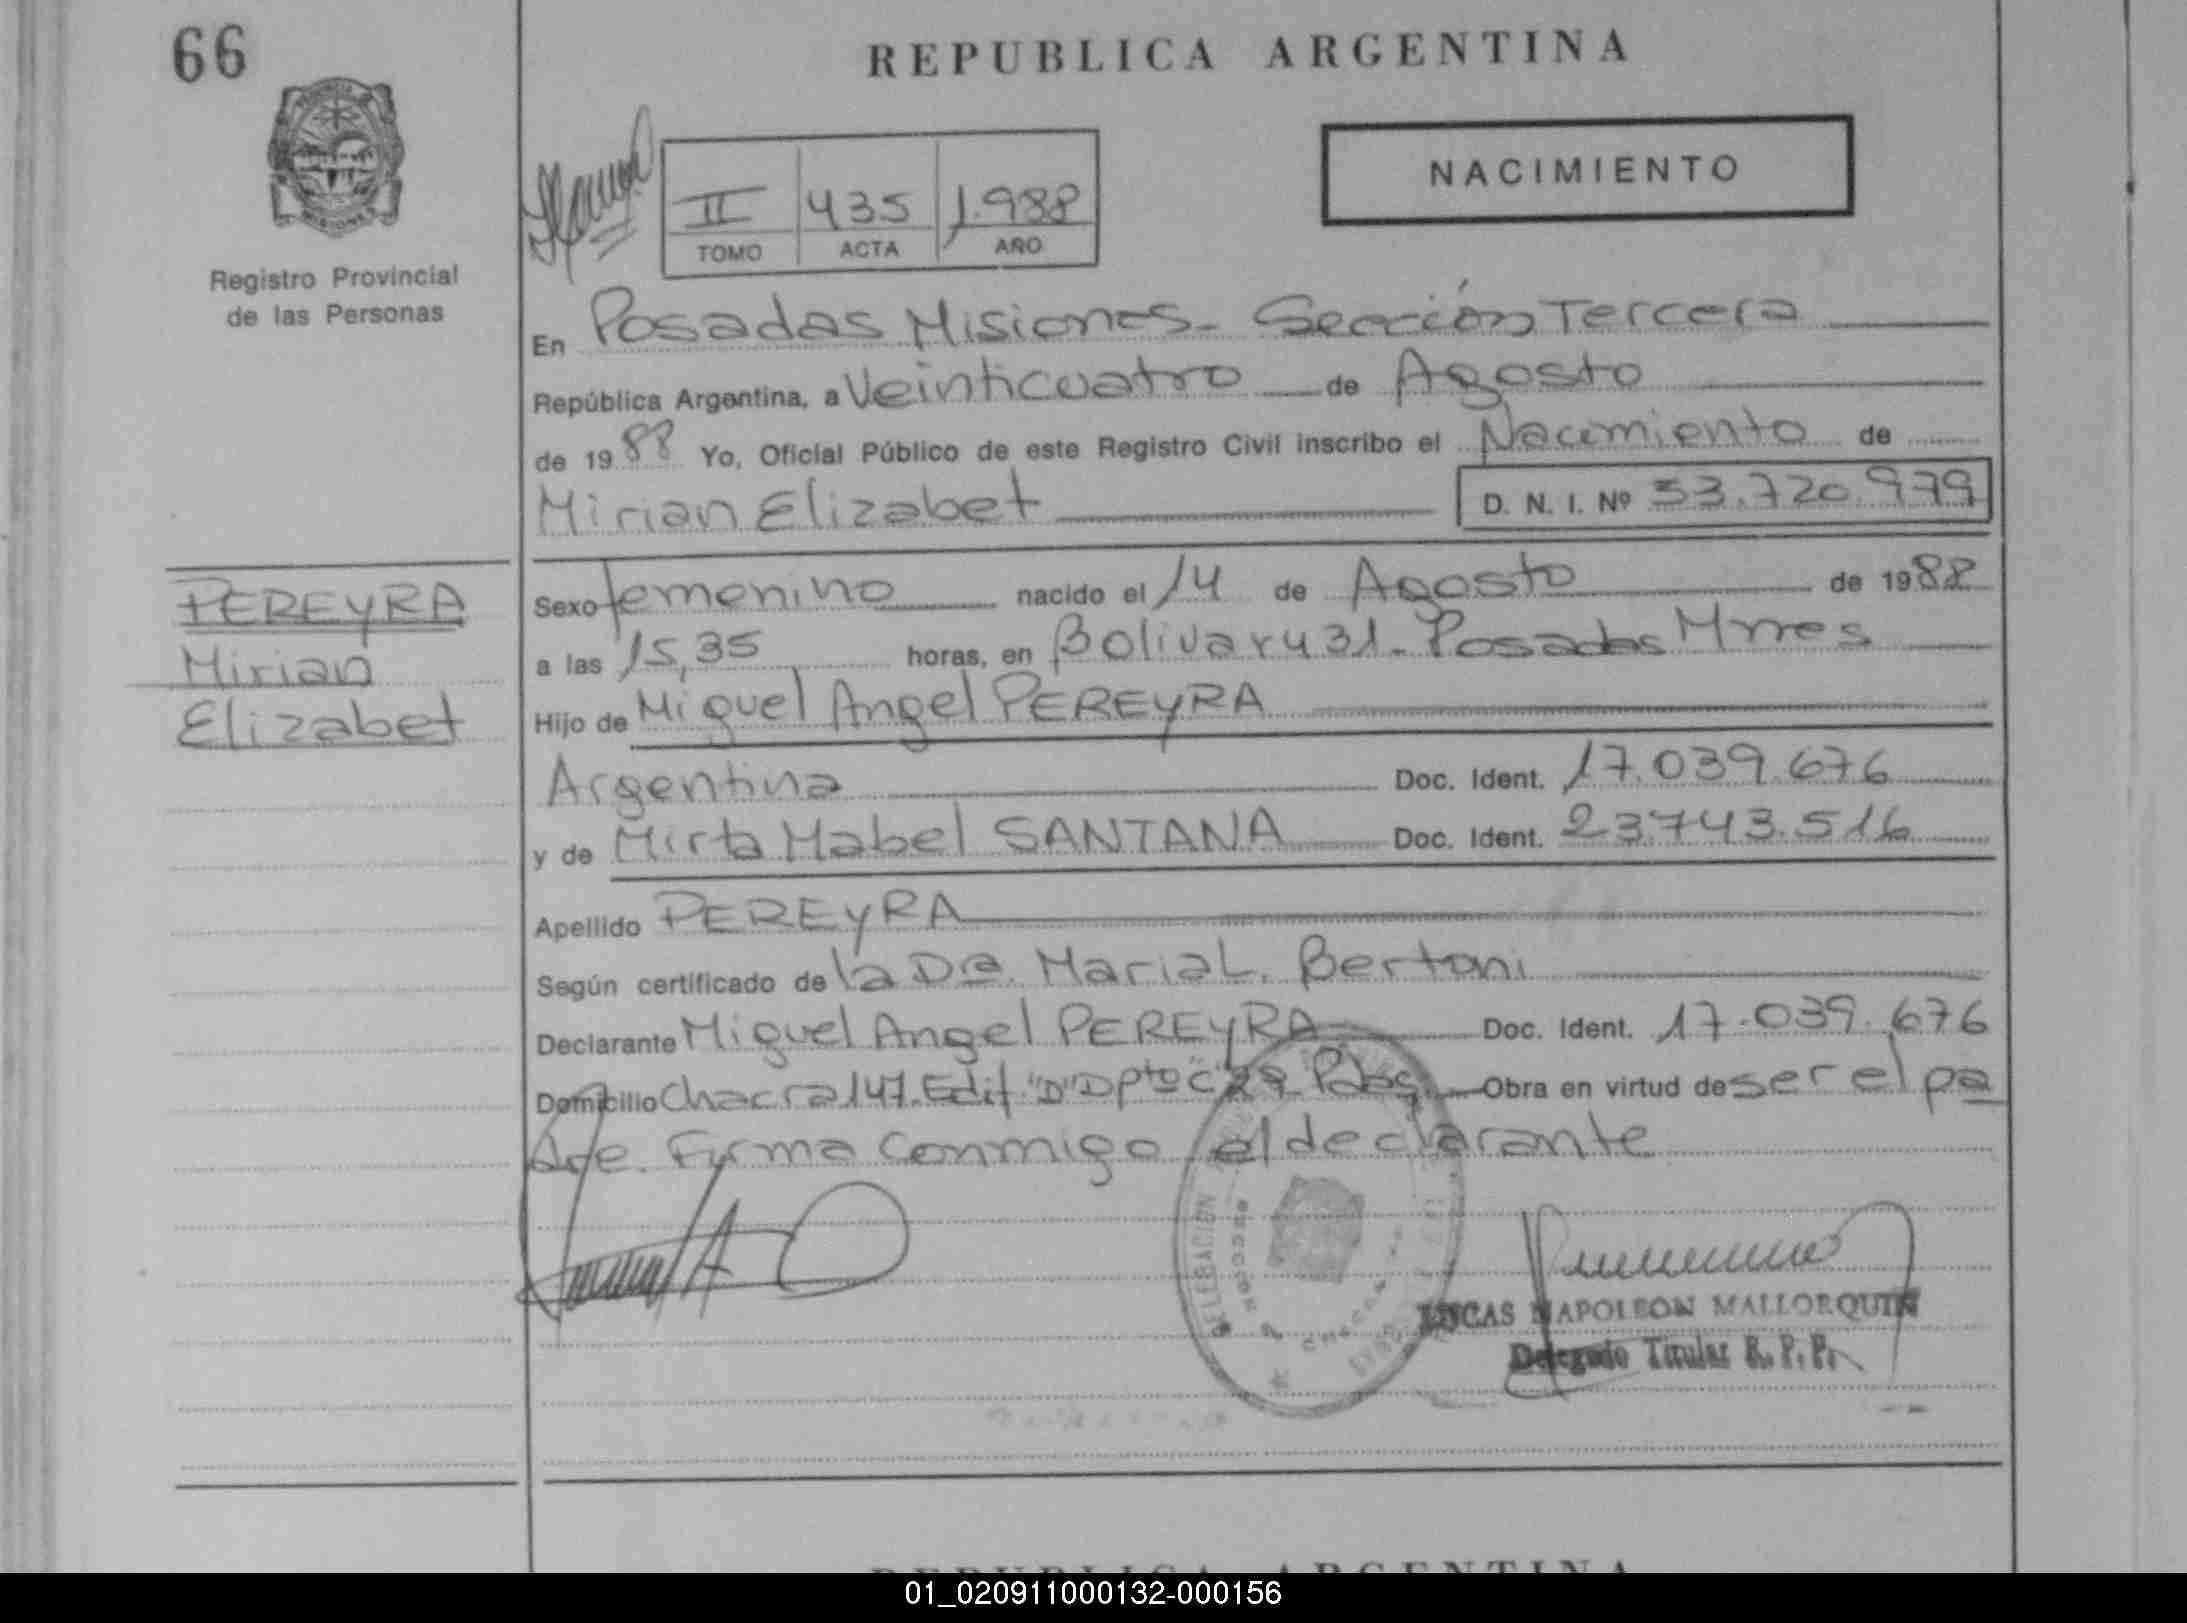 66
REPUBLICA ARGENTINA
NACIMIENTO
II 435 1.988
TOMO ACTA AÑO
Registro Provincial
de las Personas
En Posadas Misiones - Sección Tercera
República Argentina, a Veinticuatro de Agosto
de 1988 Yo, Oficial Público de este Registro Civil inscribo el Nacimiento de
Mirian Elizabet D. N. I. Nº 33.720.979
PEREYRA
Mirian
Elizabet
Sexo femenino nacido el 14 de Agosto de 1988
a las 15,35 horas, en Bolivar 431 - Posadas Mnes
Hijo de Miguel Angel PEREYRA
Argentina Doc. Ident. 17.039.676
y de Mirta Mabel SANTANA Doc. Ident. 23.743.516
Apellido PEREYRA
Según certificado de la Dra. Maria L. Bertoni
Declarante Miguel Angel PEREYRA Doc. Ident. 17.039.676
Domicilio Chacra 147. Edif. "D" Dpto "C" Pdas. Obra en virtud de ser el pa
dre. Firma conmigo el declarante
DELEGACION
CHACRA
LUCAS NAPOLEON MALLORQUIN
Delegado Titular R. P. P.
REPUBLICA ARGENTINA
01_020911000132-000156